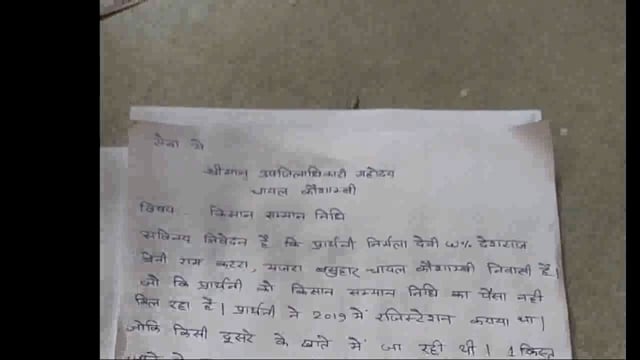 सेवा में
श्रीमान् उपजिलाधिकारी महोदय
चायल कौशाम्बी
विषय किसान सम्मान निधि
सविनय निवेदन है कि प्रार्थनी निर्मला देवी w/o देशराज
बेनी राम कटरा, मजरा चायल कौशाम्बी निवासी है।
जो कि प्रार्थनी को किसान सम्मान निधि का पैसा नही
मिल रहा है। प्रार्थनी ने 2019 में रजिस्टेशन कराया था।
जोकि किसी दुसरे के खाते में जा रही थी। 1 किस्त